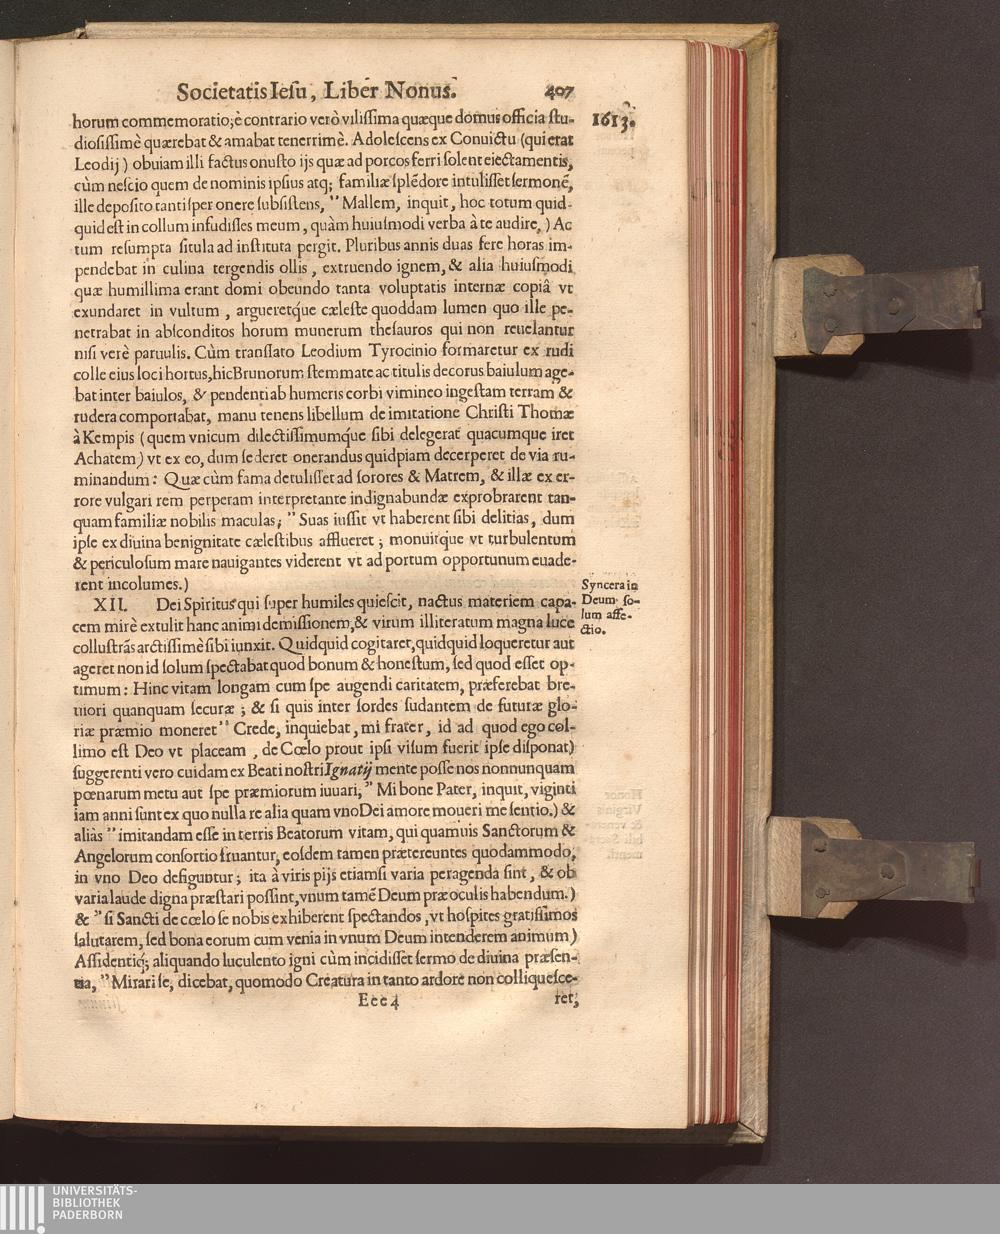 Societatis Iesu, Liber Nonus. 407
1613.
horum commemoratio; è contrario verò vilissima quæque domus officia stu-
diosissimè quærebat & amabat tenerrimè. Adolescens ex Conuictu (qui erat
Leodij) obuiam illi factus onusto ijs quæ ad porcos ferri solent eiectamentis,
cùm nescio quem de nominis ipsius atq; familiæ splēdore intulisset sermonē,
ille deposito tantisper onere subsistens, " Mallem, inquit, hoc totum quid-
quid est in collum infudisses meum, quàm huiusmodi verba à te audire, ) Ac
tum resumpta situla ad instituta pergit. Pluribus annis duas fere horas im-
pendebat in culina tergendis ollis, extruendo ignem, & alia huiusmodi
quæ humillima erant domi obeundo tanta voluptatis internæ copiâ vt
exundaret in vultum, argueretq́ue cæleste quoddam lumen quo ille pe-
netrabat in absconditos horum munerum thesauros qui non reuelantur
nisi verè paruulis. Cùm translato Leodium Tyrocinio formaretur ex rudi
colle eius loci hortus, hic Brunorum stemmate ac titulis decorus baiulum age-
bat inter baiulos, & pendenti ab humeris corbi vimineo ingestam terram &
rudera comportabat, manu tenens libellum de imitatione Christi Thomæ
à Kempis (quem vnicum dilectissimumq́ue sibi delegerat quacumque iret
Achatem) vt ex eo, dum se deret onerandus quidpiam decerperet de via ru-
minandum: Quæ cùm fama detulisset ad sorores & Matrem, & illæ ex er-
rore vulgari rem perperam interpretante indignabundæ exprobrarent tan-
quam familiæ nobilis maculas; " Suas iussit vt haberent sibi delitias, dum
ipse ex diuina benignitate cælestibus afflueret; monuitque vt turbulentum
& periculosum mare nauigantes viderent vt ad portum opportunum euade-
rent incolumes.)
Syncera in
Deum so-
lum affe-
ctio.
XII. Dei Spiritus qui super humiles quiescit, nactus materiem capa-
cem mirè extulit hanc animi demissionem, & virum illiteratum magna luce
collustrãs arctissimè sibi iunxit. Quidquid cogitaret, quidquid loqueretur aut
ageret non id solum spectabat quod bonum & honestum, sed quod esset op-
timum: Hinc vitam longam cum spe augendi caritatem, præferebat bre-
uiori quanquam securæ; & si quis inter sordes sudantem de futuræ glo-
riæ præmio moneret " Crede, inquiebat, mi frater, id ad quod ego col-
limo est Deo vt placeam, de Cœlo prout ipsi visum fuerit ipse disponat)
suggerenti vero cuidam ex Beati nostri Ignatij mente posse nos nonnunquam
pœnarum metu aut spe præmiorum iuuari, " Mi bone Pater, inquit, viginti
iam anni sunt ex quo nulla re alia quam vno Dei amore moueri me sentio.) &
aliàs " imitandam esse in terris Beatorum vitam, qui quamuis Sanctorum &
Angelorum consortio fruantur, eosdem tamen prætereuntes quodammodo,
in vno Deo defiguntur; ita à viris pijs etiamsi varia peragenda sint, & ob
varia laude digna præstari possint, vnum tamē Deum præ oculis habendum.)
& " si Sancti de cœlo se nobis exhiberent spectandos, vt hospites gratissimos
salutarem, sed bona eorum cum venia in vnum Deum intenderem animum)
Assidentiq́; aliquando luculento igni cùm incidisset sermo de diuina præsen-
tia, " Mirari se, dicebat, quomodo Creatura in tanto ardore non colliquesce-
Eee 4 ret;
UNIVERSITÄTS-
BIBLIOTHEK
PADERBORN